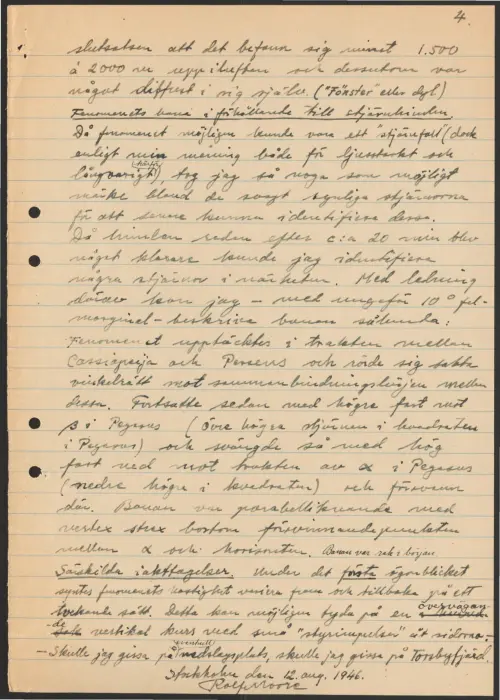 4.
slutsatsen att det befann sig minst 1.500
à 2000 m uppi luften och dessutom var
något diffust i sig själv. ("Fönster" eller dyl)
Fenomenets bana i förhållande till stjärnhimlen.
Då fenomenet möjligen kunde vara ett "stjärnfall" (dock
enligt min mening både för ljusstarkt och
långvarigt) tog jag så noga som möjligt
märke bland de svagt synliga stjärnorna
för att senare kunna identifiera dessa.
Då himlen redan efter c:a 20 min blev
något klarare kunde jag identifiera
några stjärnor i närheten. Med ledning
därav kan jag – med ungefär 10° fel-
marginal – beskriva banan sålunda:
Fenomenet upptäcktes i trakten mellan
Cassiopeija och Perseus och rörde sig sakta
vinkelrätt mot sammanbindningslinjen mellan
dessa. Fortsatte sedan med högre fart mot
β i Pegasus (övre högra stjärnan i kvadraten
i Pegasus) och svängde så med hög
fart ned mot trakten av α i Pegasus
(nedre högra i kvadraten) och försvann
där. Banan var parabelliknande med
vertex strax bortom försvinnandepunkten
mellan α och horisonten. Banan var
Särskilda iakttagelser. Under det första ögonblicket
syntes fenomenets hastighet variera fram och tillbaka på ett
tvekande sätt. Detta kan möjligen tyda på en övervägan-
de vertikal kurs med små "styrimpulser" åt sidorna.
– Skulle jag gissa på eventuell nedslagsplats, skulle jag gissa på Torsbyfjärd.
Stockholm den 12 aug. 1946.
Rolf